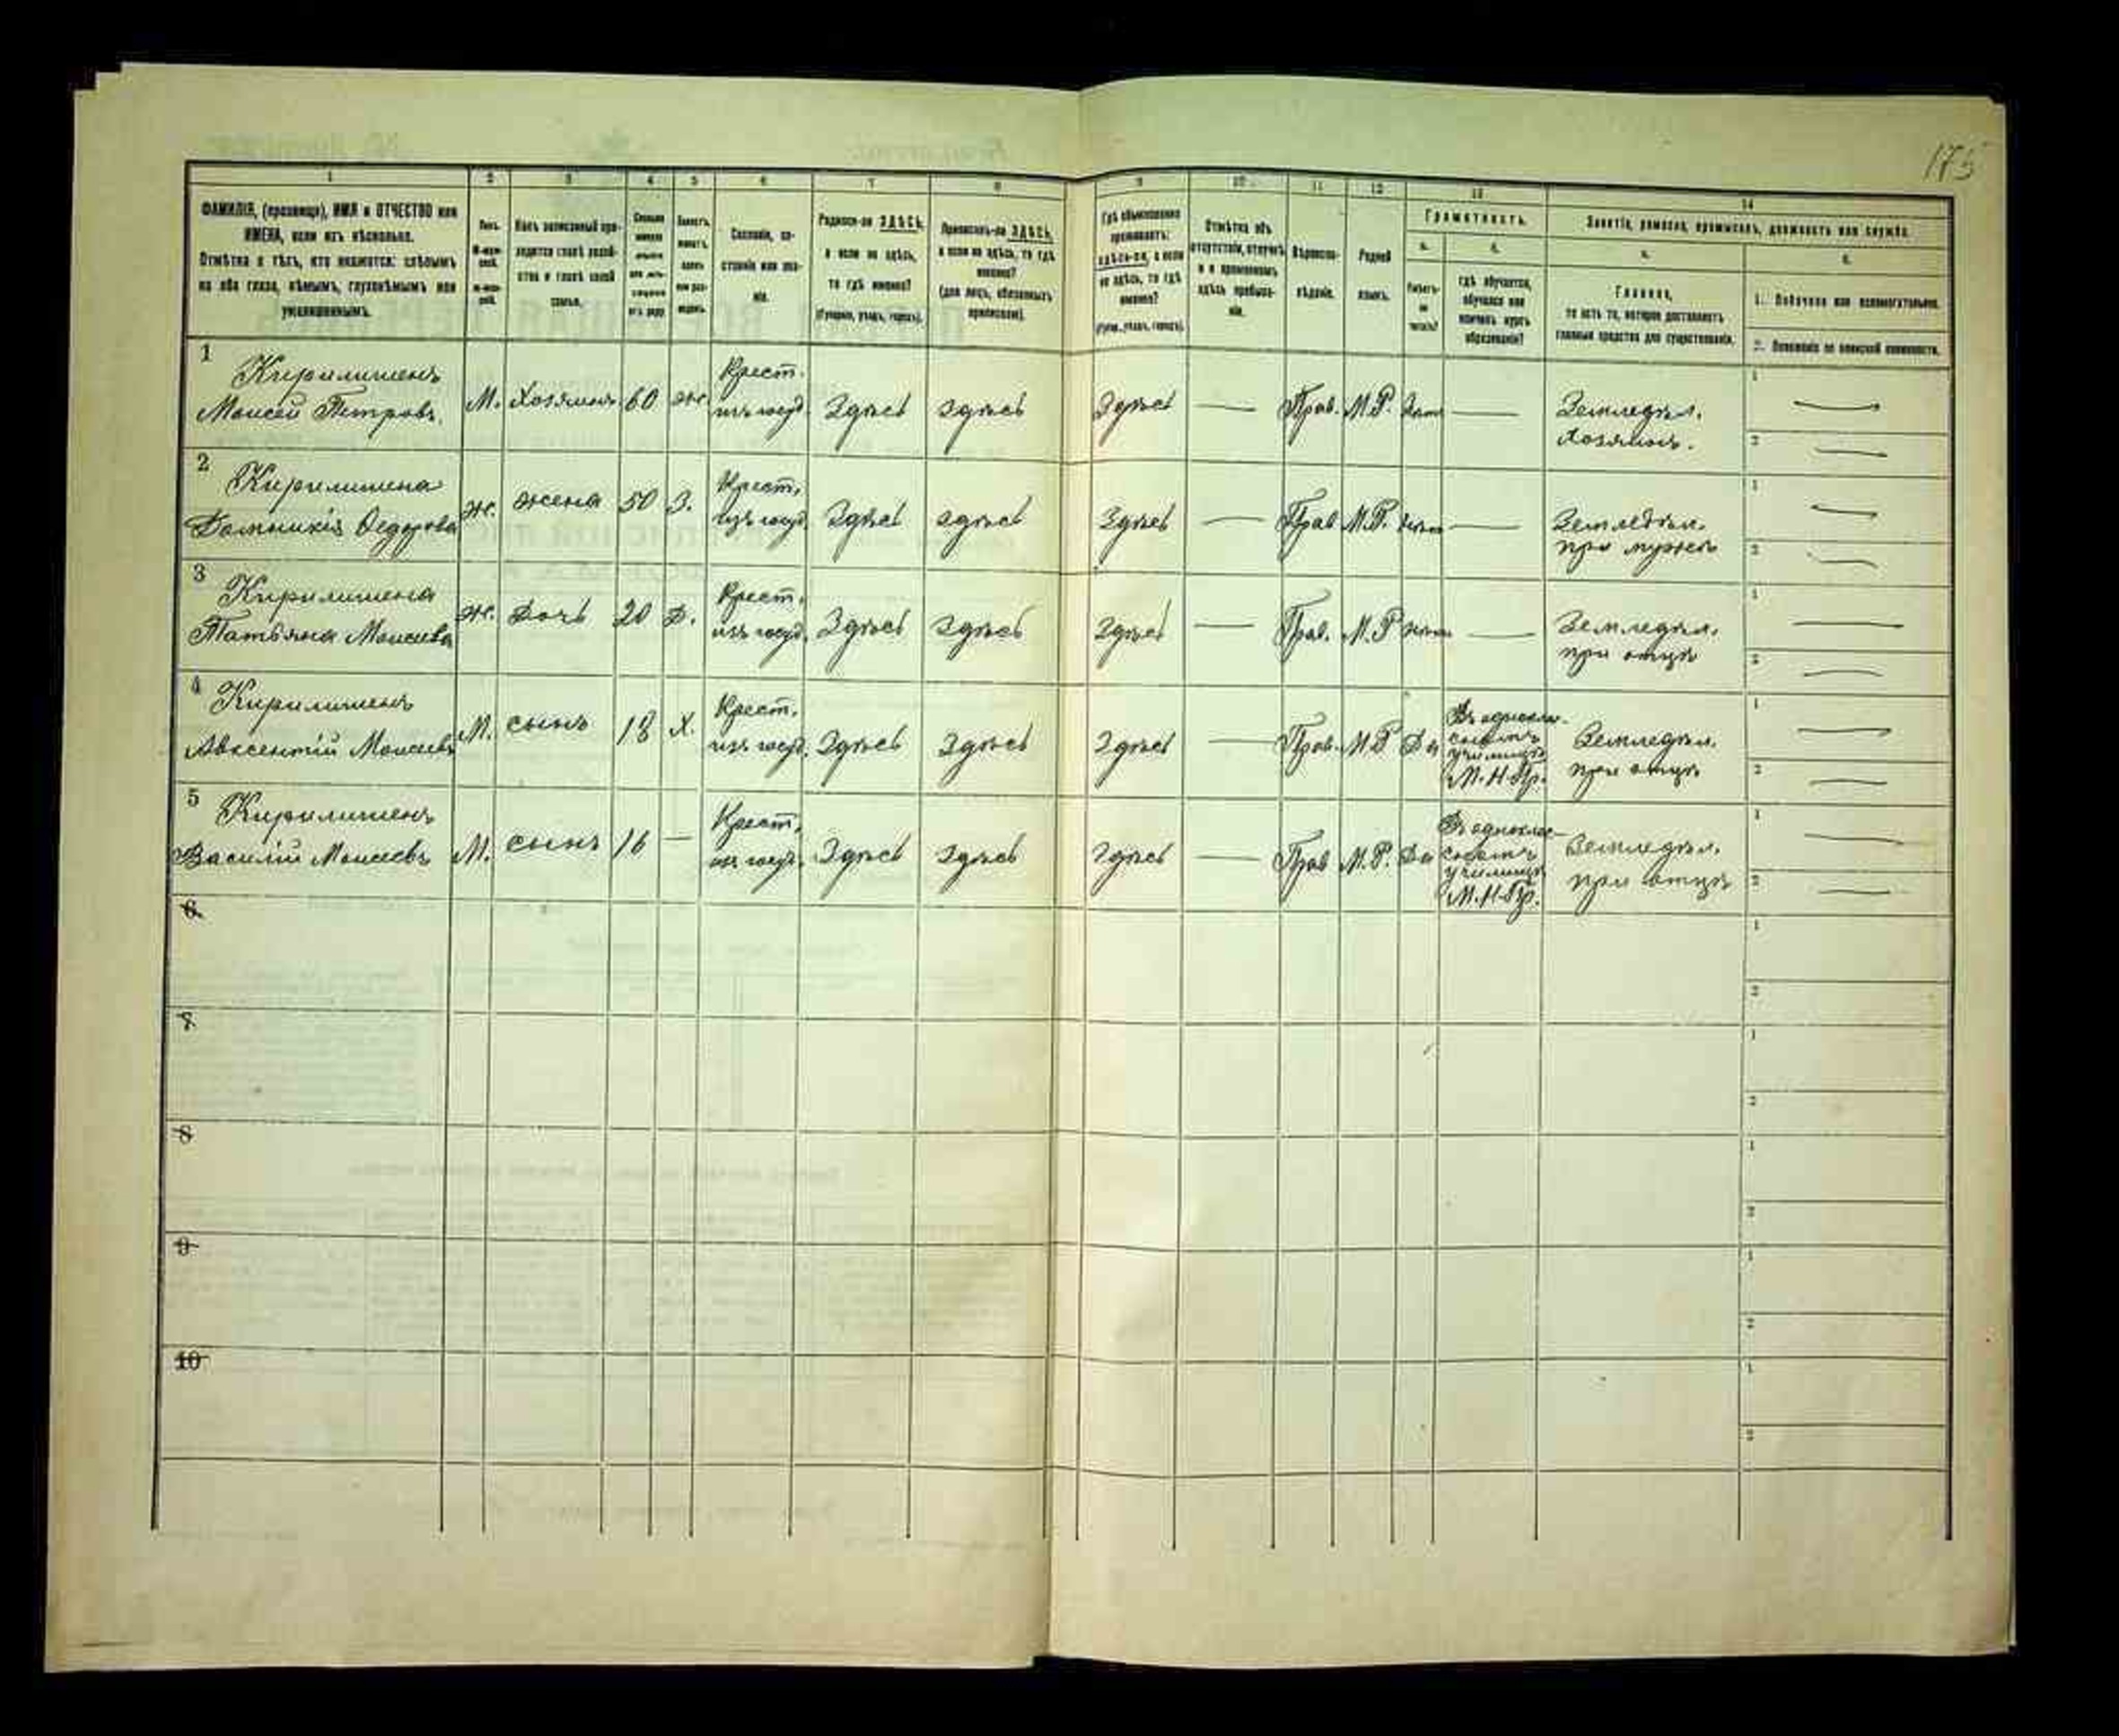 175
1 2 3 4 5 6 7 8 9 10 11 12 13 14
ФАМИЛІЯ, (прозвище), ИМЯ и ОТЧЕСТВО или
ИМЕНА, если ихъ нѣсколько.
Отмѣтка о тѣхъ, кто окажется: слѣпымъ
на оба глаза, нѣмымъ, глухонѣмымъ или
умалишеннымъ.
Полъ.
Какъ записанный при-
ходится главѣ хозяй-
ства и главѣ своей
семьи.
Сословіе, со-
стояніе или зва-
ніе.
Родился-ли ЗДѢСЬ,
а если не здѣсь,
то гдѣ именно?
(Губернія, уѣздъ, городъ).
Приписанъ-ли ЗДѢСЬ,
а если не здѣсь, то гдѣ
именно?
(для лицъ, обязанныхъ
припиской).
Гдѣ обыкновенно
проживаетъ:
здѣсь-ли, а если
не здѣсь, то гдѣ
именно?
(Губ., уѣздъ, городъ).
Отмѣтка объ
отсутствіи, отлучкѣ
и о временномъ
здѣсь пребыва-
ніи.
Вѣроиспо-
вѣданіе.
Родной
языкъ.
Грамотность.
а.
Умѣетъ-
ли
читать?
б.
гдѣ обучается,
обучался или
кончилъ курсъ
образованія?
Занятіе, ремесло, промыселъ, должность или служба.
а.
Главное,
то есть то, которое доставляетъ
главныя средства для существованія.
б.
1. Побочное или вспомогательное.
2. Положеніе по воинской повинности.
1 Кирилишенъ
Моисей Петровъ. М. Хозяинъ 60 ж. Крест. изъ госуд. Здѣсь здѣсь Здѣсь — Прав. М.Р. — Земледѣл. 1 —
хозяинъ. 2 —
2 Кирилишена
Домникія Ѳедорова ж. жена 50 З. Крест. изъ госуд. Здѣсь здѣсь Здѣсь — Прав М.Р. — Земледѣл. 1 —
при мужѣ 2 —
3 Кирилишена
Татьяна Моисеева ж. дочь 20 Д. Крест. изъ госуд. Здѣсь здѣсь Здѣсь — Прав. М.Р — Земледѣл. 1 —
при отцѣ 2 —
4 Кирилишенъ
Авксентій Моисеевъ М. сынъ 18 Х. Крест. изъ госуд. Здѣсь Здѣсь Здѣсь — Прав. М.Р Да Въ однокла-
сномъ
училищѣ
М.Н.Пр. Земледѣл. 1 —
при отцѣ 2 —
5 Кирилишенъ
Василій Моисеевъ М. сынъ 16 — Крест. изъ госуд. Здѣсь здѣсь Здѣсь — Прав М.Р. Да Въ однокла-
сномъ
училищѣ
М.Н.Пр. Земледѣл. 1 —
при отцѣ 2 —
6 1
2
7 1
2
8 1
2
9 1
2
10 1
2